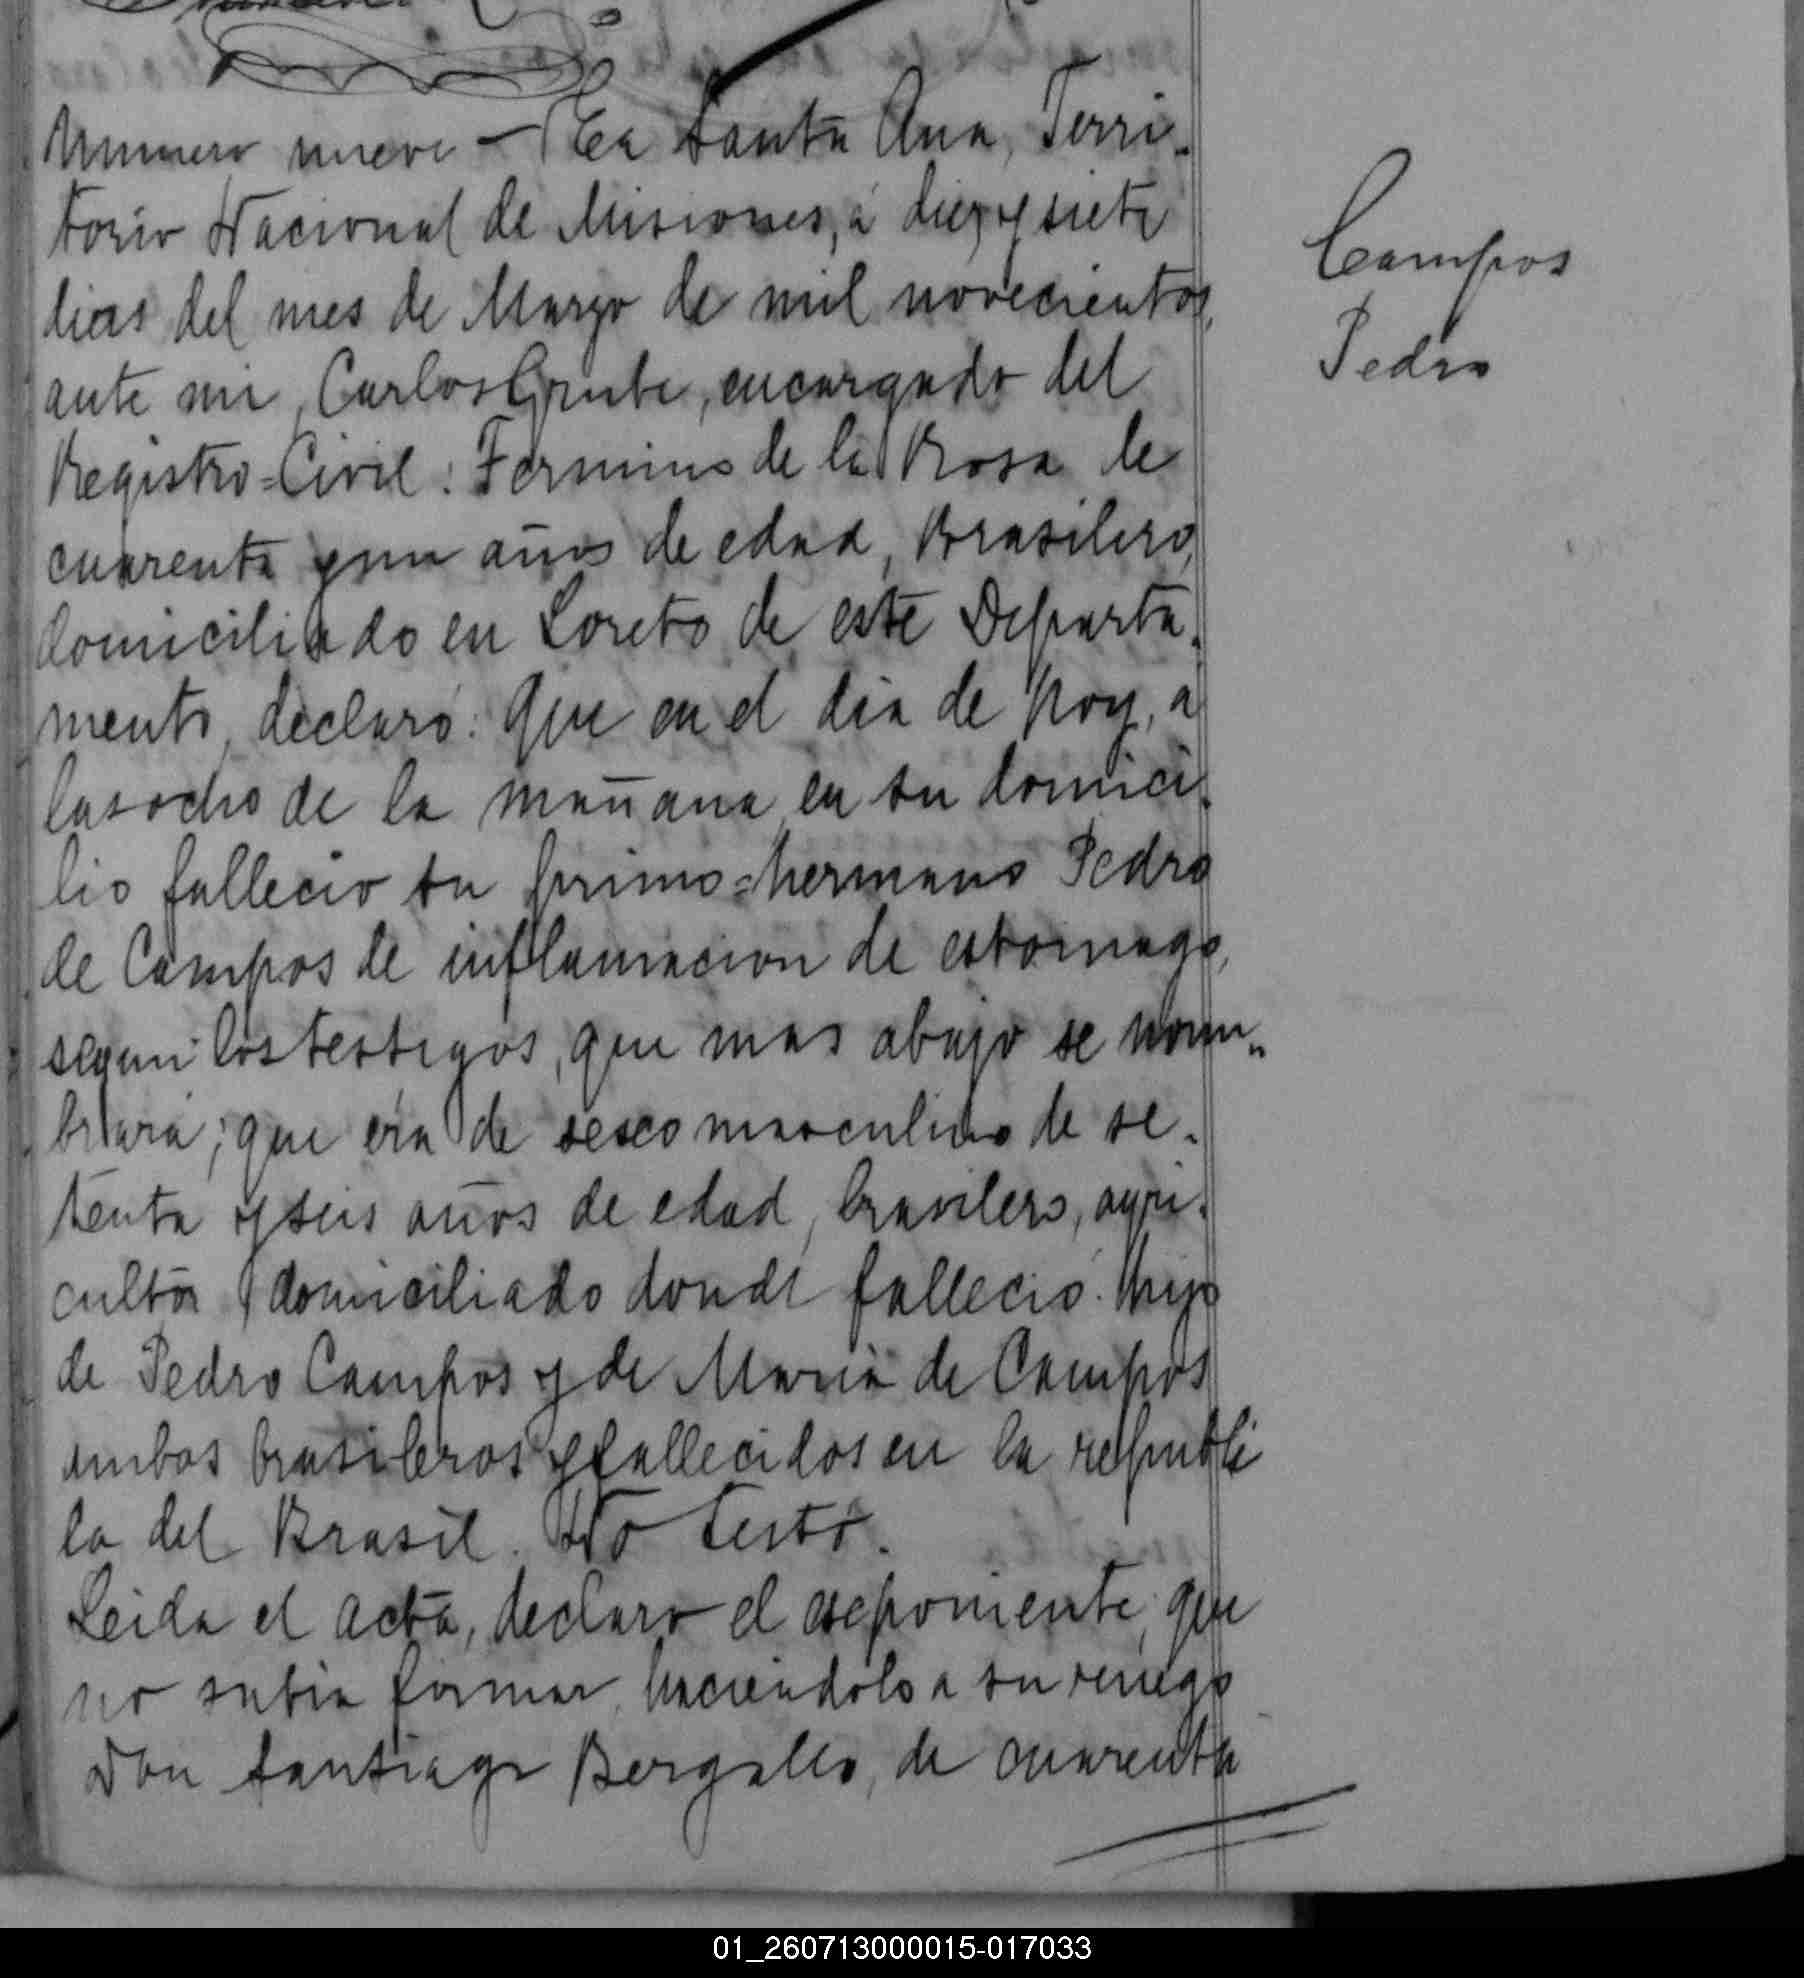 Numero nueve — En Santa Ana, Terri-
torio Nacional de Misiones, á diez y siete
dias del mes de Marzo de mil novecientos,
ante mi, Carlos Grube, encargado del
Registro=Civil: Fermino de la Rosa de
cuarenta y un años de edad, Brasilero,
domiciliado en Loreto de este Departa-
mento, declaró: Que en el dia de hoy, a
las ocho de la mañana en su domici-
lio fallecio su primo=hermano Pedro
de Campos de inflamacion de estomago,
segun los testigos, que mas abajo se nom-
brara; que era de sexo masculino de se-
tenta y seis años de edad, brasilero, agri-
cultor domiciliado donde falleció. hijo
de Pedro Campos y de Maria de Campos
ambos brasileros y fallecidos en la republi
ca del Brasil. No testó.
Leida el acta, declaro el exponiente, que
no sabia firmar, haciendolo a su ruego
Don Santiago Bergallo, de cuarenta
Campos
Pedro
01_260713000015-017033